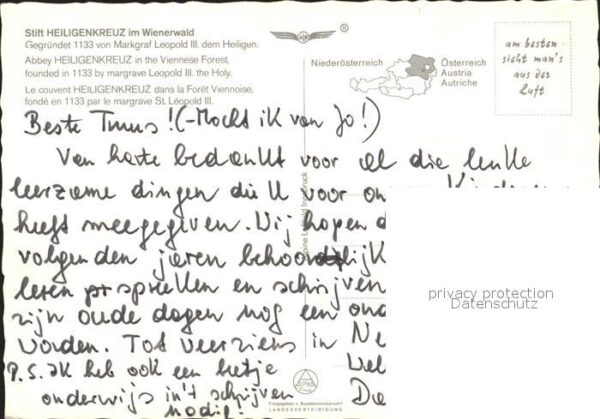 Stift HEILIGENKREUZ im Wienerwald
Gegründet 1133 von Markgraf Leopold III. dem Heiligen.
Abbey HEILIGENKREUZ in the Viennese Forest,
founded in 1133 by margrave Leopold III. the Holy.
Le couvent HEILIGENKREUZ dans la Forêt Viennoise,
fondé en 1133 par le margrave St. Léopold III.
®
Niederösterreich
Österreich
Austria
Autriche
am besten
sieht man's
aus der
Luft
Beste Truus! (-Mocht ik van Jo!)
Van harte bedankt voor al die leuke
leerzame dingen die U voor
heeft meegegeven. Wij hopen
volgenden jaren behoorlijk
leren spreken en schrijven
zijn oude dagen nog een
worden. Tot weerziens in Ne
P.S. Ik heb ook een betje
onderwijs in't schrijven
nodig!
Wel
Die
Alpine Luftbild Innsbruck
ALPINE
Freigegeben v. Bundesministerium f.
LANDESVERTEIDIGUNG
privacy protection
Datenschutz